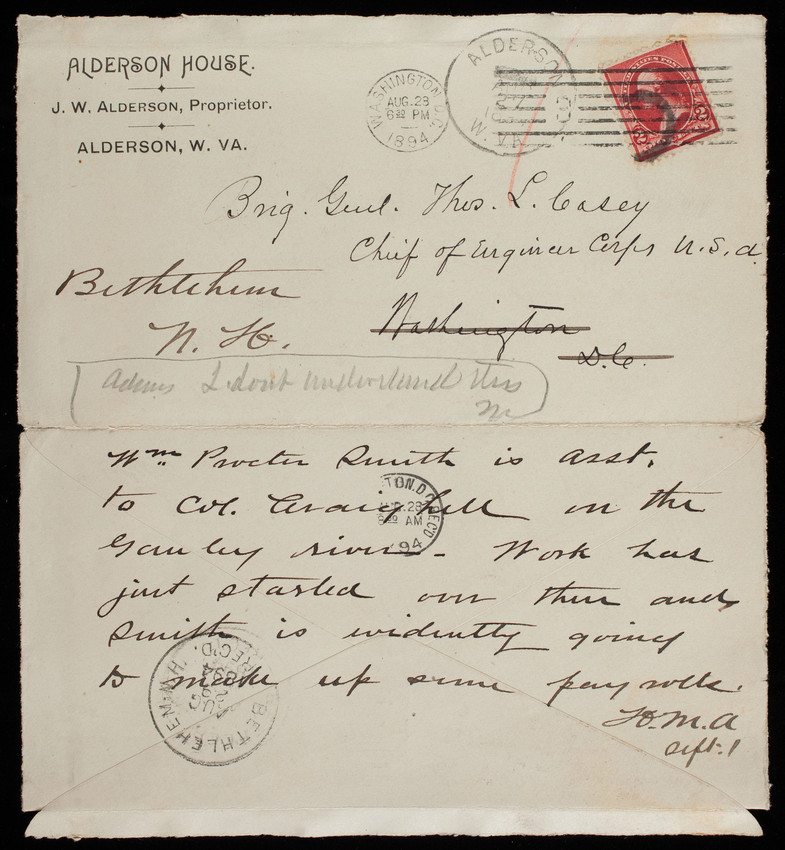 ALDERSON HOUSE.
J. W. ALDERSON, Proprietor.
ALDERSON, W. VA.
WASHINGTON, D.C.
AUG. 28
6 30 PM
1894
ALDERSON
27
W. VA.
UNITED STATES POSTAGE
2 2
Brig. Genl. Thos. L. Casey
Chief of Engineer Corps U.S.A.
Bethlehem
N. H.
Washington
D.C.
Adams I dont understand this
Wm. Procter Smith is asst.
to Col. Craighill on the
Gauley river. Work has
just started over there and
Smith is evidently going
to make up some pay rolls.
H.M.A
Sept. 1
TON, D.C. REC'D
AUG. 28
AM
94
BETHLEHEM, N.H.
AUG
29
1894
REC'D.